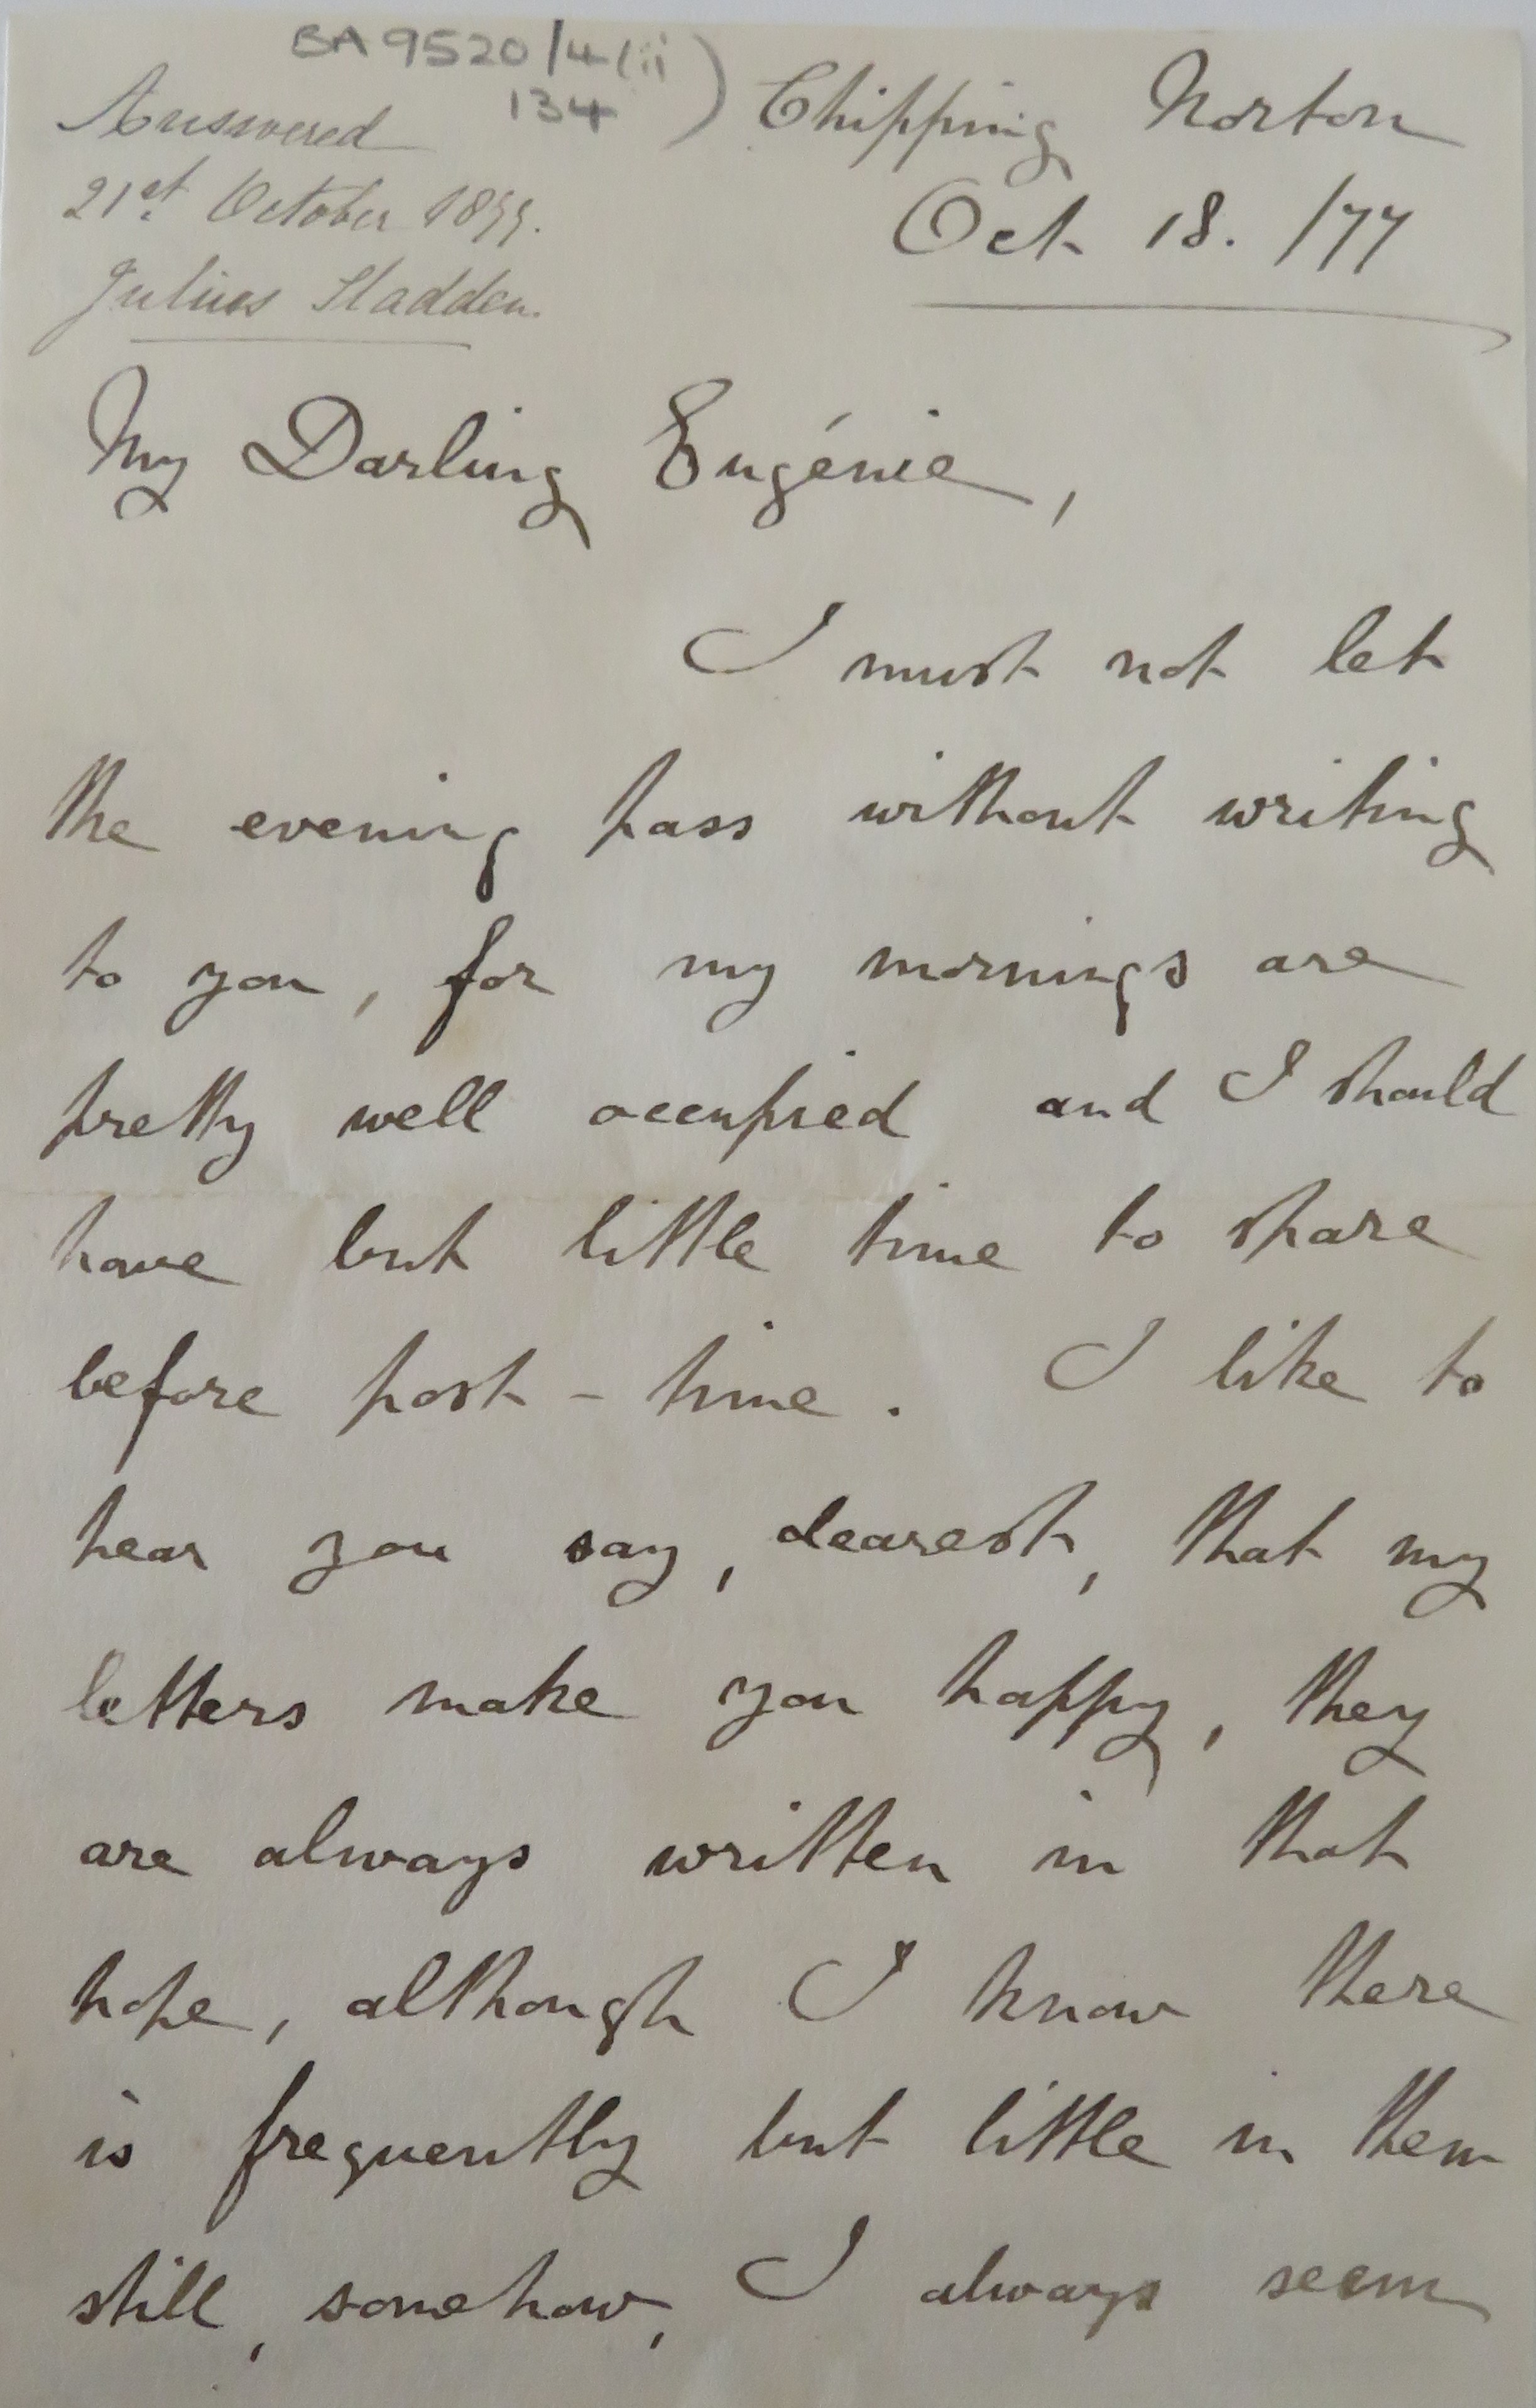 BA 9520/4(ii)
134
Answered
21st. October 1877.
Julius Sladden.
Chipping Norton
Oct 18. /77
My Darling Eugénie,
I must not let
the evening pass without writing
to you, for my mornings are
pretty well occupied and I should
have but little time to spare
before post-time. I like to
hear you say, dearest, that my
letters make you happy, they
are always written in that
hope, although I know there
is frequently but little in them
still, somehow, I always seem